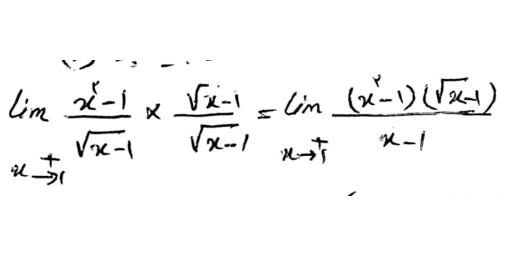 lim x→1⁺ (x²-1)/(√(x-1)) × (√(x-1))/(√(x-1)) = lim x→1⁺ ((x²-1)(√(x-1)))/(x-1)